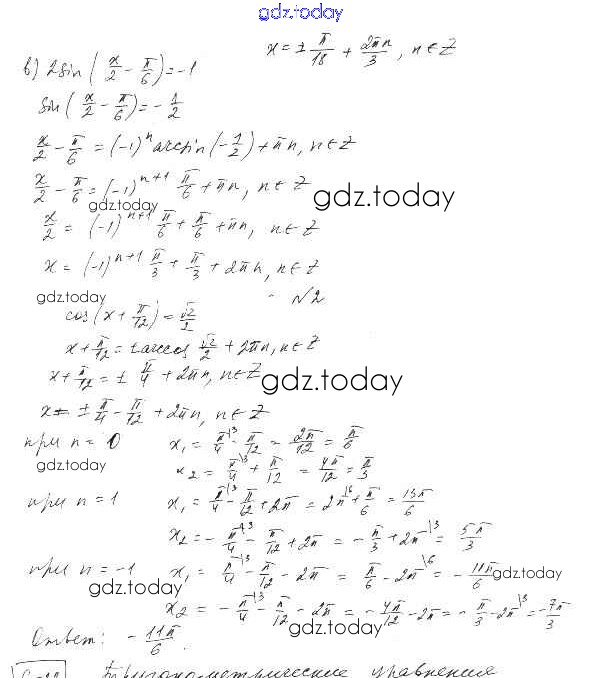 gdz.today
x = ± π/18 + 2πn/3, n ∈ Z
в) 2sin(x/2 - π/6) = -1
sin(x/2 - π/6) = -1/2
x/2 - π/6 = (-1)^n arcsin(-1/2) + πn, n ∈ Z
x/2 - π/6 = (-1)^(n+1) π/6 + πn, n ∈ Z
gdz.today
gdz.today
x/2 = (-1)^(n+1) π/6 + π/6 + πn, n ∈ Z
x = (-1)^(n+1) π/3 + π/3 + 2πn, n ∈ Z
gdz.today
№2
cos(x + π/12) = √2/2
x + π/12 = ± arccos √2/2 + 2πn, n ∈ Z
x + π/12 = ± π/4 + 2πn, n ∈ Z
gdz.today
x = ± π/4 - π/12 + 2πn, n ∈ Z
при n = 0 x₁ = π/4^\3 - π/12 = 2π/12 = π/6
gdz.today
x₂ = π/4^\3 + π/12 = 4π/12 = π/3
при n = 1 x₁ = π/4^\3 - π/12 + 2π = 2π^\6 + π/6 = 13π/6
x₂ = - π/4^\3 - π/12 + 2π = - π/3 + 2π^\3 = 5π/3
при n = -1 x₁ = π/4^\3 - π/12 - 2π = π/6 - 2π^\6 = - 11π/6
gdz.today
gdz.today
x₂ = - π/4^\3 - π/12 - 2π = - 4π/12 - 2π = - π/3 - 2π^\3 = -7π/3
gdz.today
Ответ: - 11π/6.
Тригонометрические уравнения